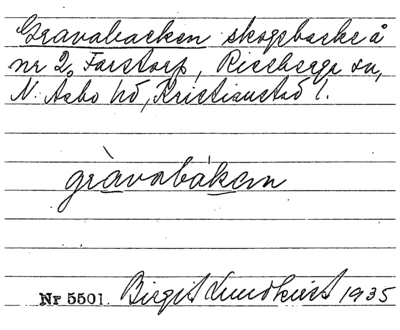 Gravabacken skogsbacke å
nr 2, Farstorp, Riseberga sn,
N. Åsbo hd, Kristianstad l.
gràvabákæn
Nr 5501. Birgit Lundkvist 1935